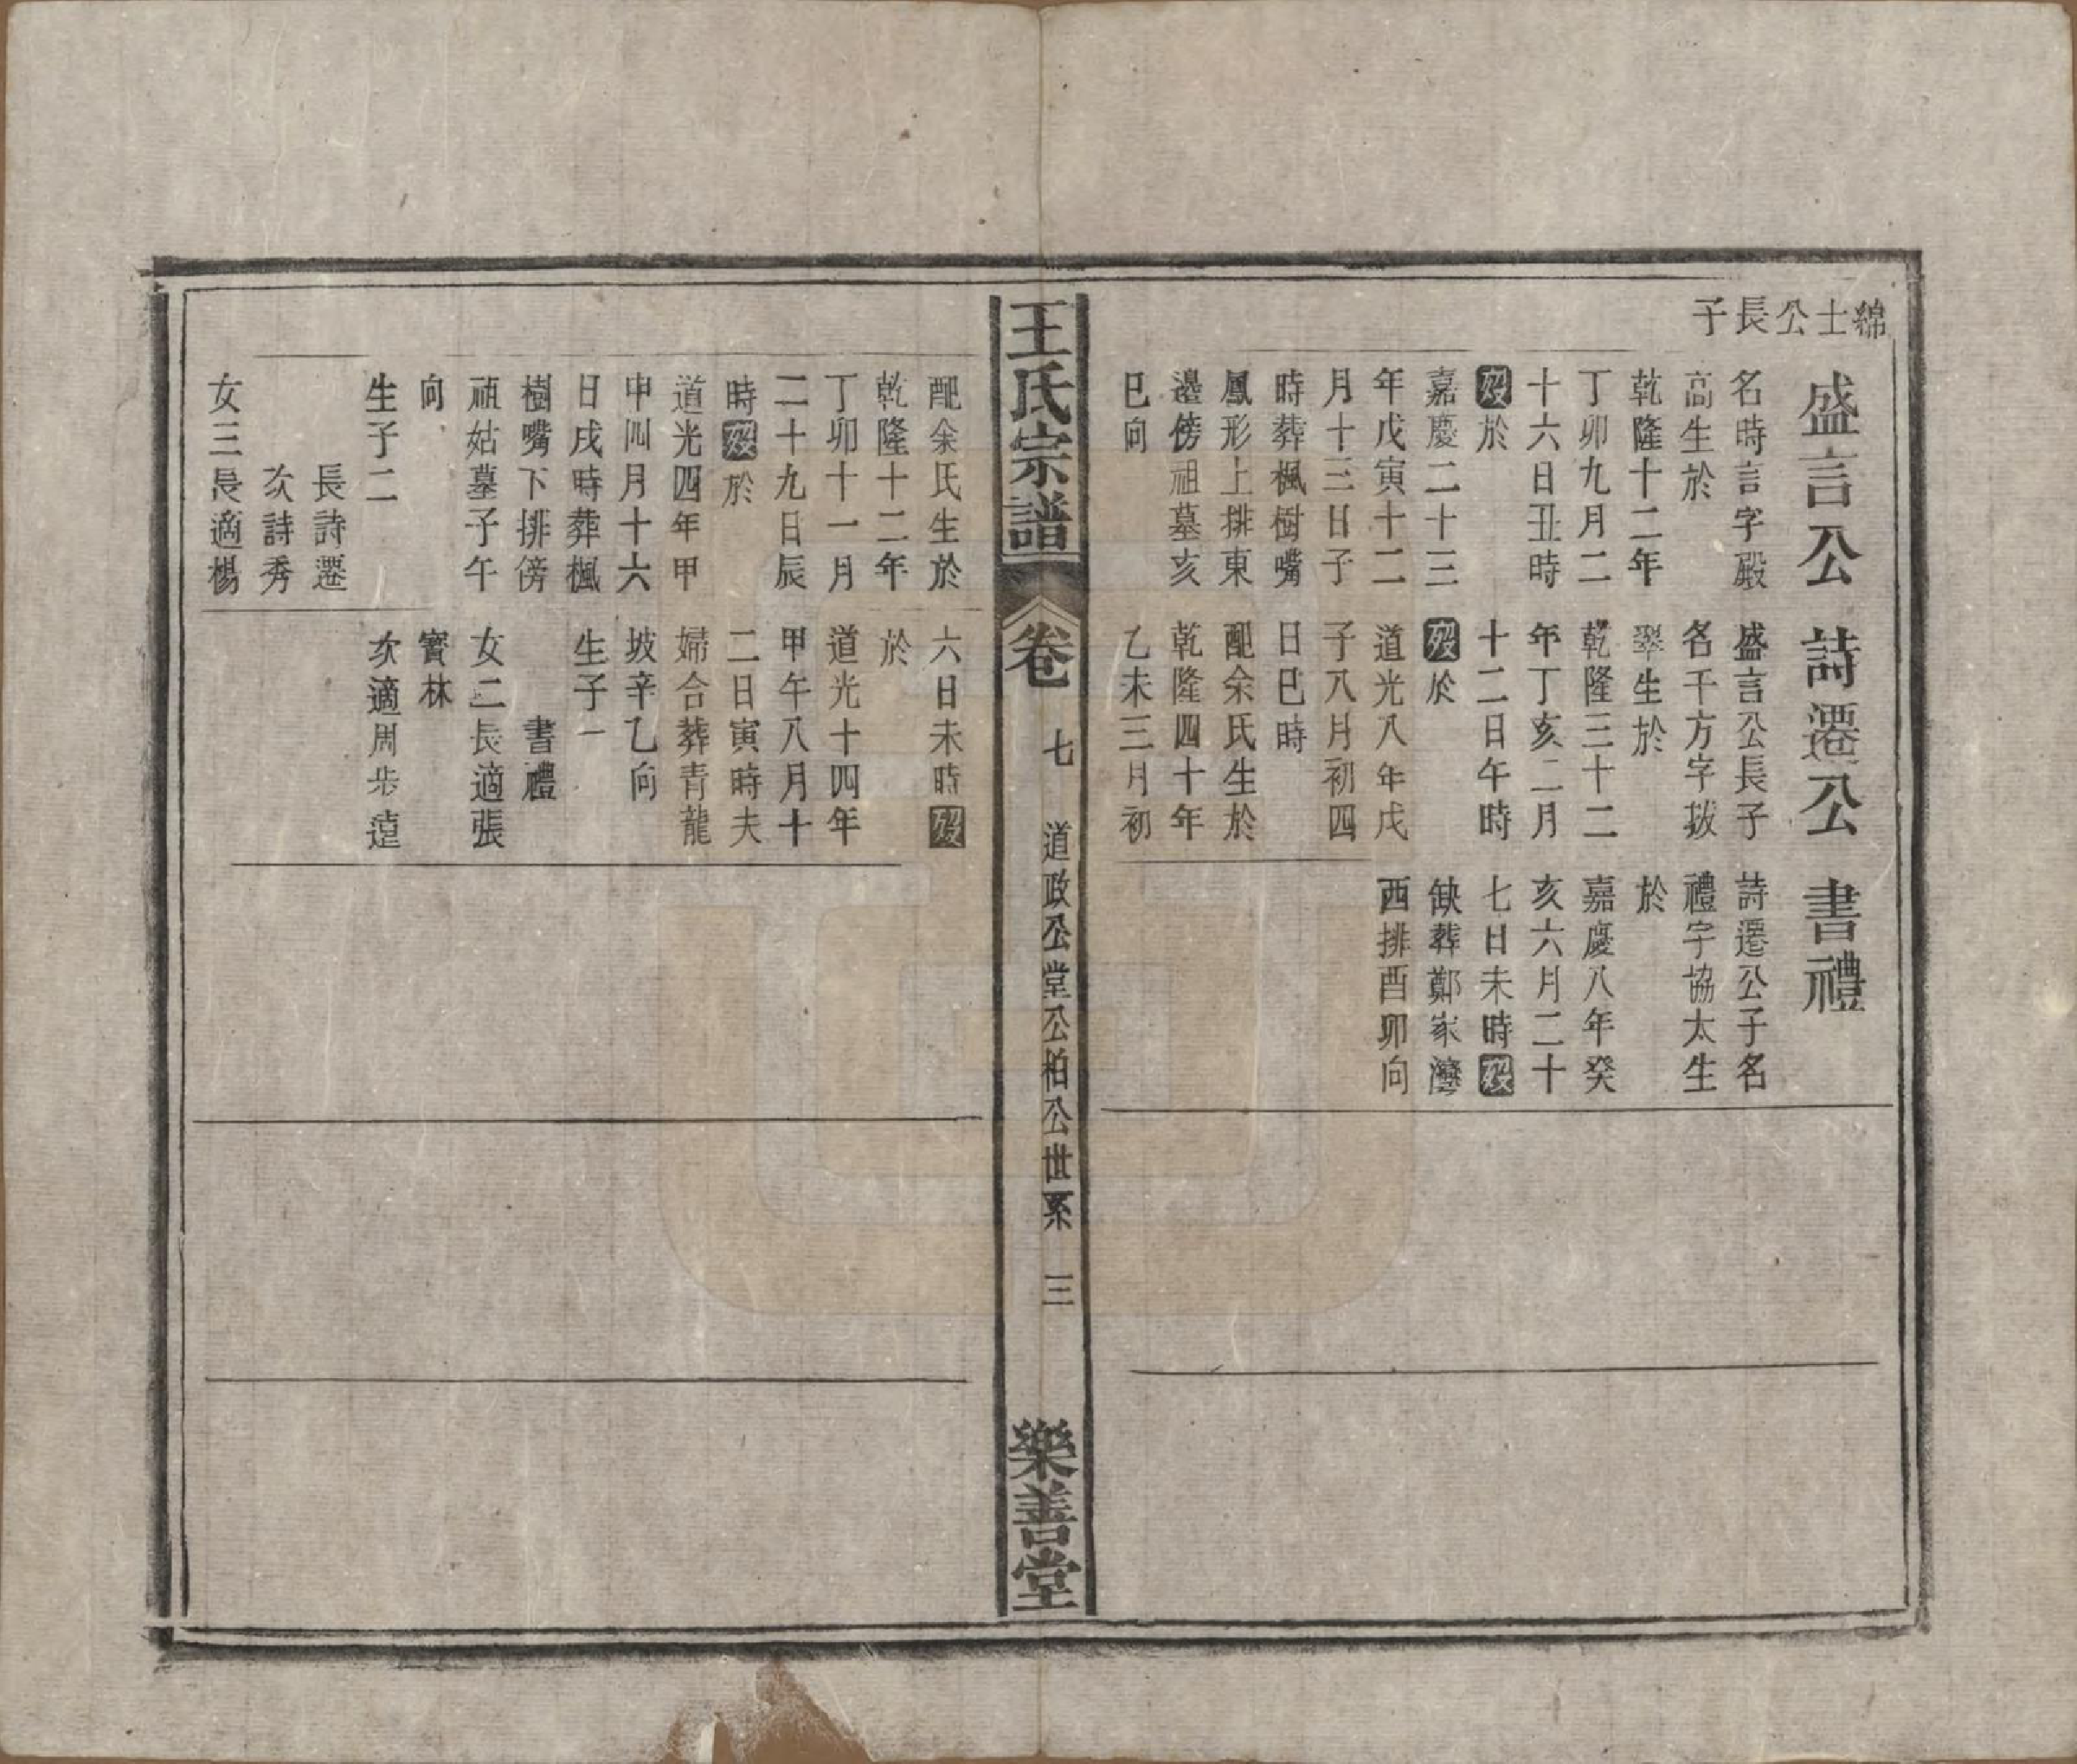 綿士公長子
盛言公
名時言字殿
高生於
乾隆十二年
丁卯九月二
十六日丑時
歿於
嘉慶二十三
年戊寅十二
月十三日子
時葬楓樹嘴
鳳形上排東
邊傍祖墓亥
巳向
詩遷公
盛言公長子
名千方字拔
翠生於
乾隆三十二
年丁亥二月
十二日午時
歿於
道光八年戊
子八月初四
日巳時
配余氏生於
乾隆四十年
乙未三月初
書禮
詩遷公子名
禮字協太生
於
嘉慶八年癸
亥六月二十
七日未時歿
缺葬鄭家灣
西排酉卯向
王氏宗譜
卷七
道政公堂公柏公世系
三
樂善堂
配余氏生於
乾隆十二年
丁卯十一月
二十九日辰
時歿於
道光四年甲
申四月十六
日戌時葬楓
樹嘴下排傍
祖姑墓子午
向
生子二
長詩遷
次詩秀
女三長適楊
六日未時歿
於
道光十四年
甲午八月十
二日寅時夫
婦合葬青龍
坡辛乙向
生子一
書禮
女二長適張
寶林
次適周步遠